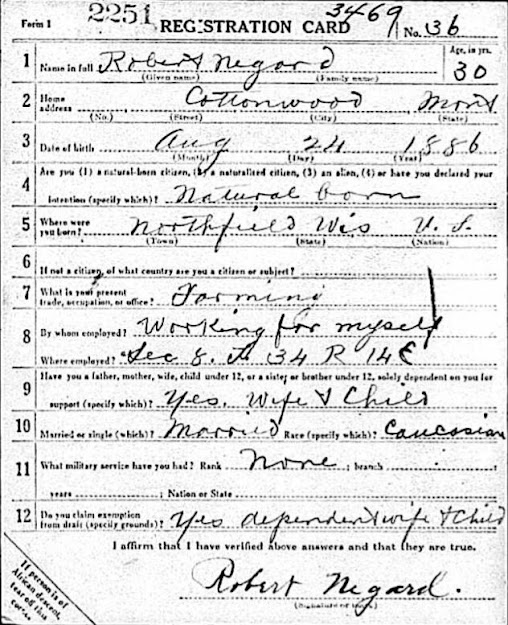 Form 1 2251 REGISTRATION CARD 3469 No. 36
1 Name in full Robert Negard Age, in yrs. 30
(Given name) (Family name)
2 Home address Cottonwood Mont
(No.) (Street) (City) (State)
3 Date of birth Aug 24 1886
(Month) (Day) (Year)
4 Are you (1) a natural-born citizen, (2) a naturalized citizen, (3) an alien, (4) or have you declared your
intention (specify which)? Natural born
5 Where were you born? Northfield Wis U. S.
(Town) (State) (Nation)
6 If not a citizen, of what country are you a citizen or subject?
7 What is your present trade, occupation, or office? Farming
8 By whom employed? Working for myself
Where employed? Sec 8. T 34 R 14 E
9 Have you a father, mother, wife, child under 12, or a sister or brother under 12, solely dependent on you for
support (specify which)? Yes. Wife & Child
10 Married or single (which)? Married Race (specify which)? Caucasian
11 What military service have you had? Rank None ; branch ;
years ; Nation or State
12 Do you claim exemption from draft (specify grounds)? Yes dependent wife & Child
I affirm that I have verified above answers and that they are true.
Robert Negard.
(Signature or mark)
If person is of
African descent,
tear off this
corner